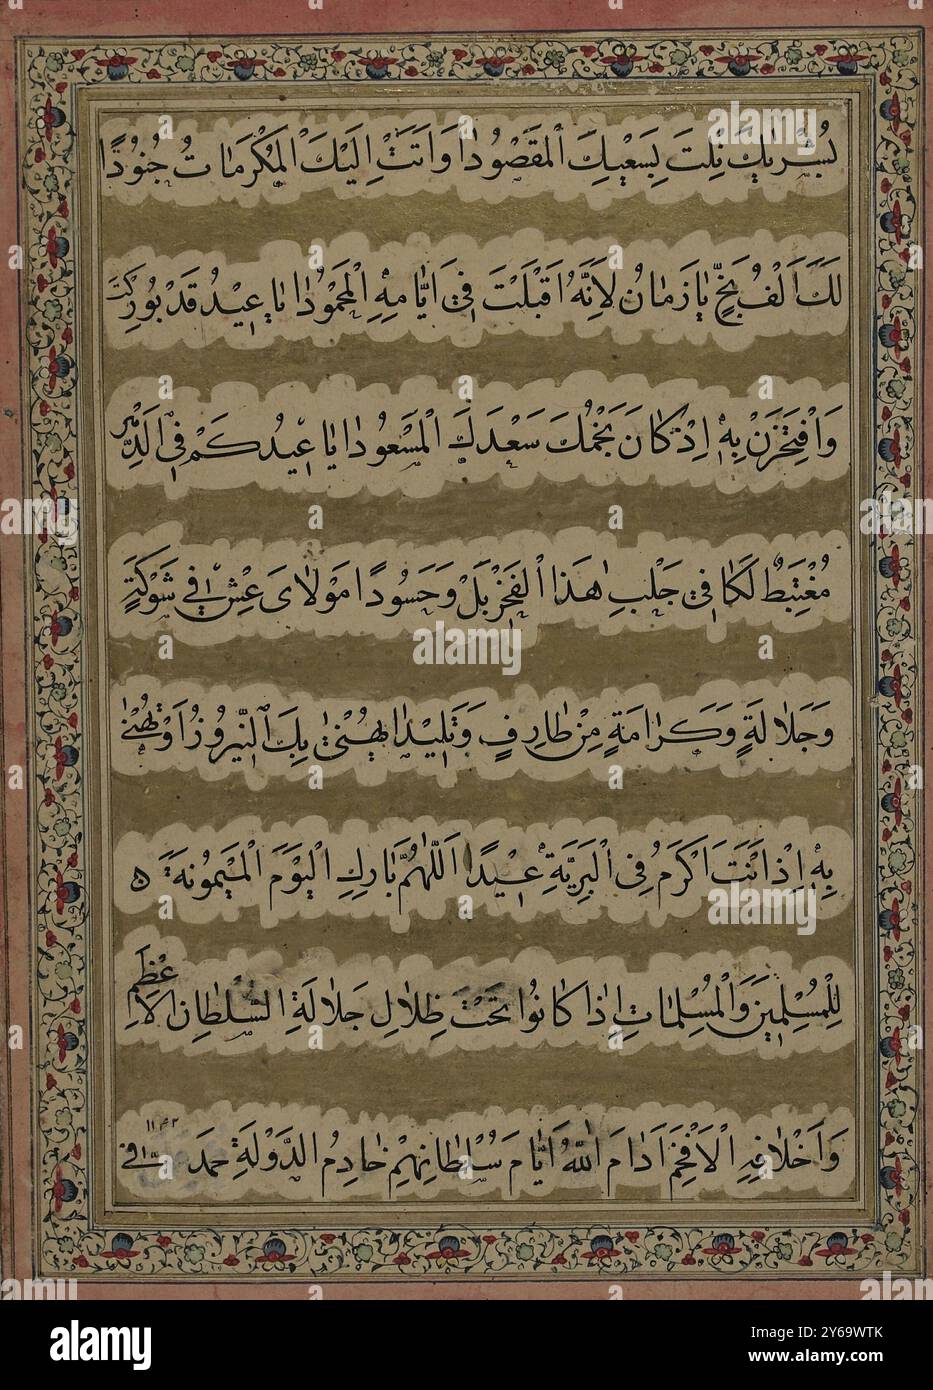 بُشْرَيكَ نِلْتَ بِسَعْيِكَ الْمَقْصُودَا وَاَتَتْ اِلَيْكَ الْمَكْرُمَاتُ جُنُودًا
لَكَ اَلْفُ بَخٍّ يَا زَمَانُ لِاَنَّهُ اَقْبَلْتَ فِي اَيَّامِهِ الْمَحْمُودَا يَا عِيْدُ قَدْ بُورِكْتَ
وَافْتَخِرَنْ بِهِ اِذْ كَانَ نَجْمُكَ سَعْدَكَ الْمَسْعُودَا يَا عِيْدُ كَمْ فِي الدَّهْرِ
مُغْتَبِطٌ لَكَا فِي جَلْبِ هٰذَا الْفَخْرِ بَلْ وَحَسُودًا مَوْلَايَ عِشْ فِي شَوْكَةٍ
وَجَلَالَةٍ وَكَرَامَةٍ مِنْ طَارِفٍ وَتَلِيْدَا يَهْنِئُ بِكَ النَّيْرُوزُ اَوْ تَهْنَئْ
بِهِ اِذْ اَنْتَ اَكْرَمُ فِي الْبَرِيَّةِ عِيْدًا اَللّٰهُمَّ بَارِكِ الْيَوْمَ الْمَيْمُونَةَ ٥
لِلْمُسْلِمِينَ وَالْمُسْلِمَاتِ اِذَا كَانُوا تَحْتَ ظِلَالِ جَلَالَةِ السُّلْطَانِ الْاَعْظَمِ
وَاَخْلَافِهِ الْاَفْخَمِ اَدَامَ اللّٰهُ اَيَّامَ سُلْطَانِهِمْ خَادِمُ الدَّوْلَةِ محمد
alamy
Image ID: 2Y69WTK
www.alamy.com